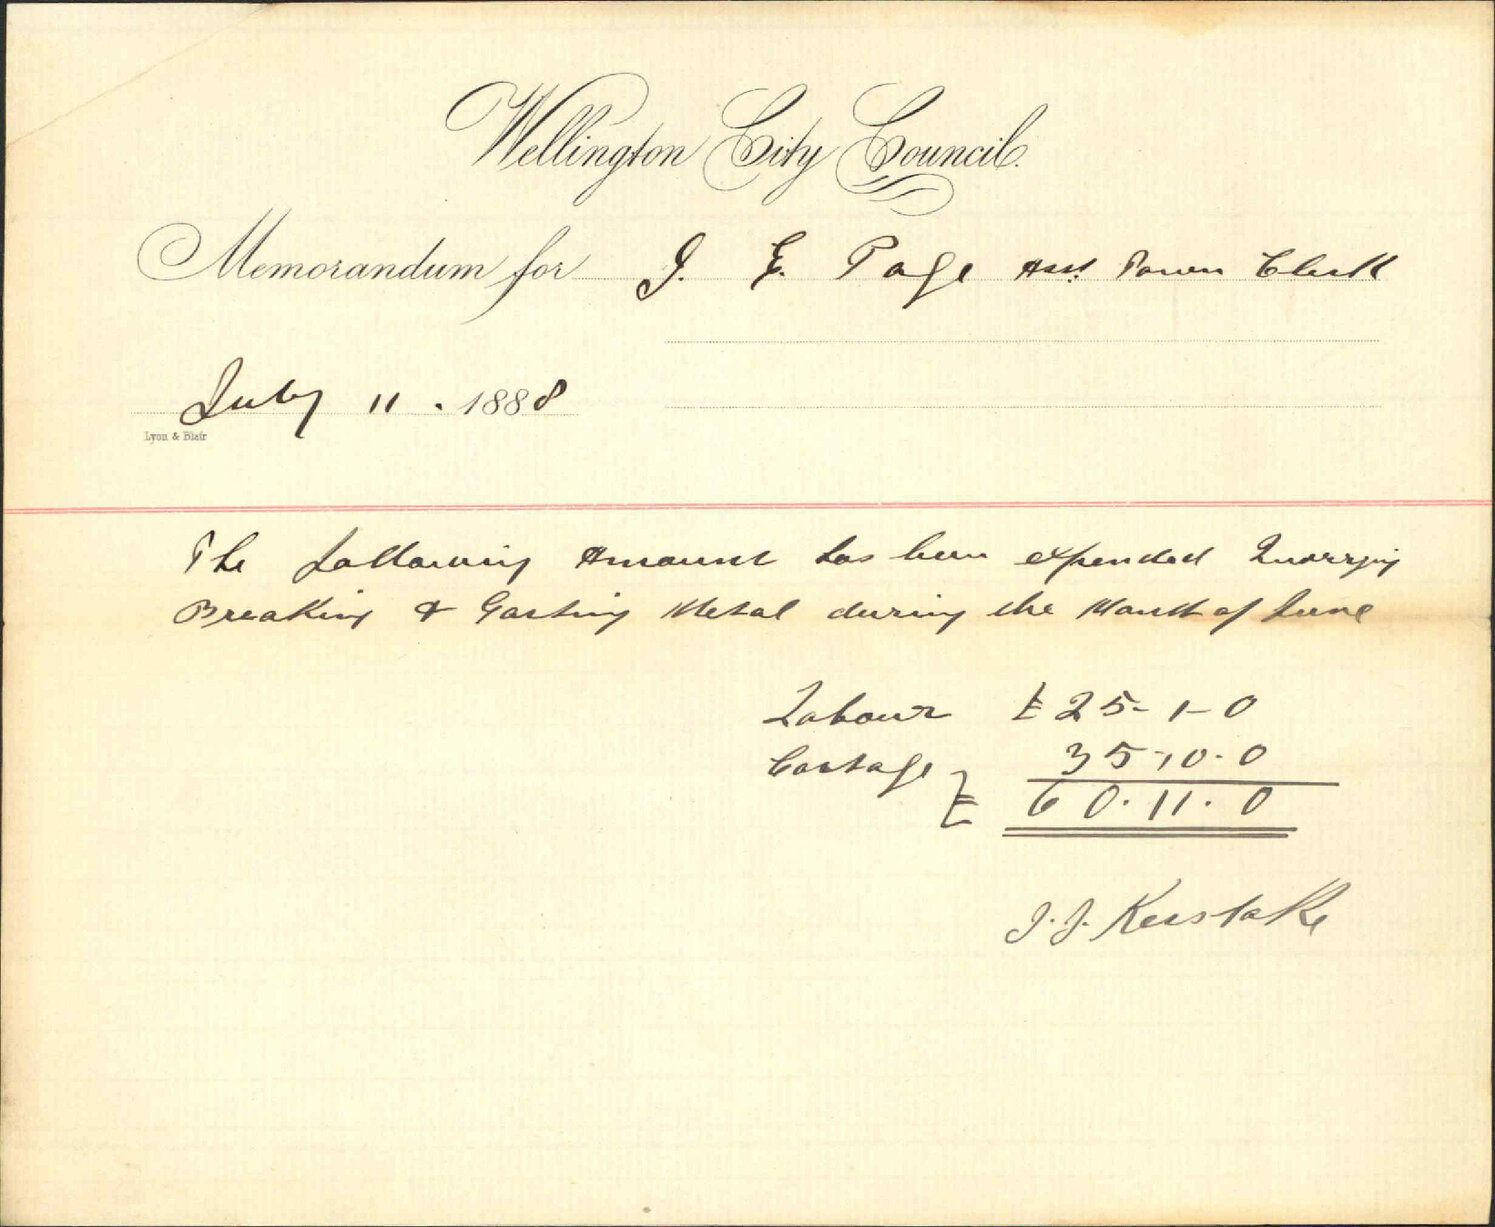 Wellington City Council.
Memorandum for J. E. Page Asst Town Clerk
July 11 . 1888
Lyon & Blair
The following Amount has been expended Quarrying
Breaking & Carting Metal during the Month of June
Labour £ 25-1-0
Cartage 35-10-0
£ 60.11.0
J. J.